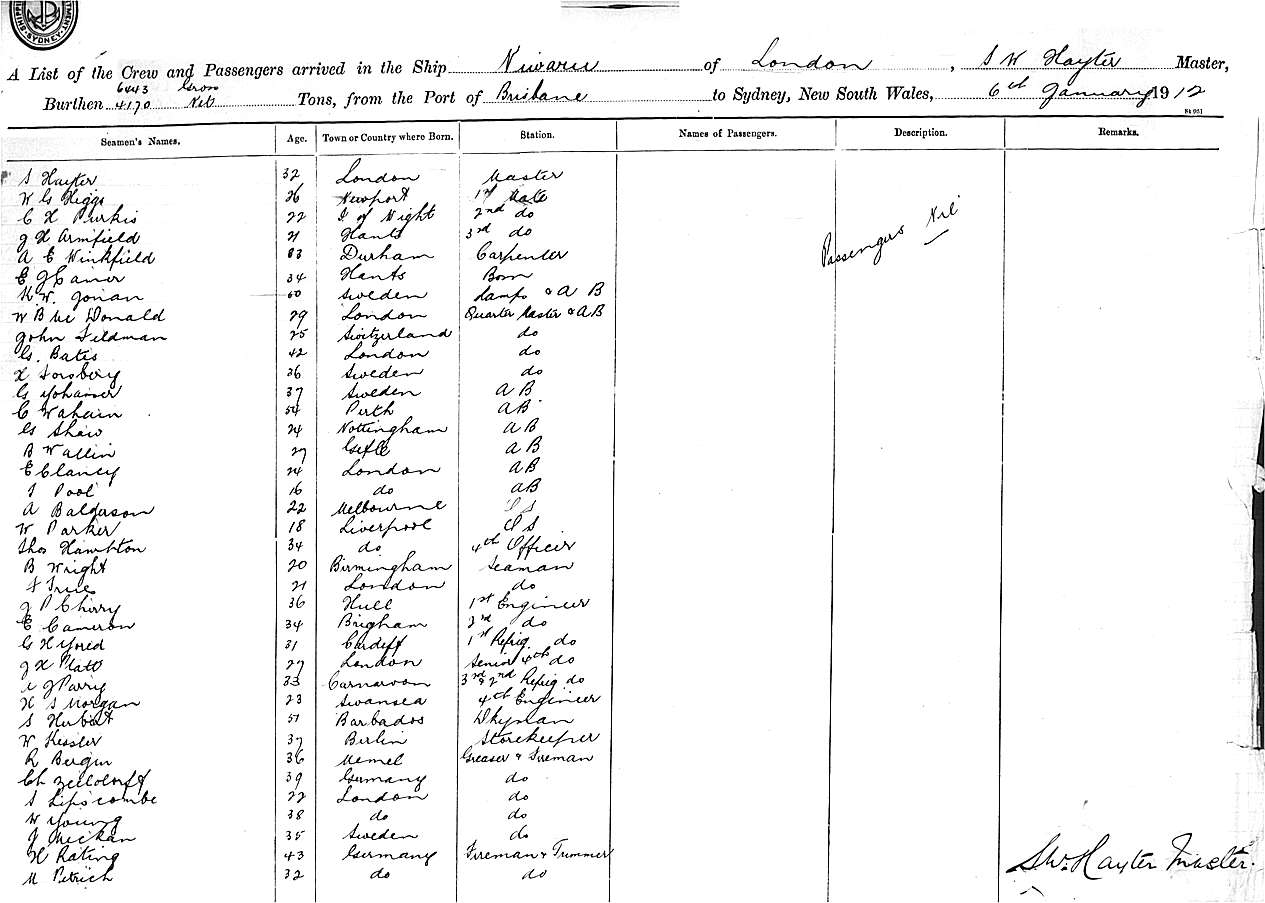 SYDNEY
A List of the Crew and Passengers arrived in the Ship Niwaru of London, S W Hayter Master,
6443 Gross
Burthen 4170 Net Tons, from the Port of Brisbane to Sydney, New South Wales, 6th January 1912
Seamen's Names. Age. Town or Country where Born. Station. Names of Passengers. Description. Remarks.
S Hayter 32 London Master
W G Higgs 26 Newport 1st Mate
C H Purkis 22 I of Wight 2nd do
J H Armfield 21 Hants 3rd do
Passengers Nil
A E Winkfield 33 Durham Carpenter
E J 34 Hants Bosn
K W. 60 Sweden Lamps & A B
W B Mc Donald 29 London Quarter Master & A B
John Feldman 25 Switzerland do
G. Bates 42 London do
H Forsberg 36 Sweden do
G 37 Sweden A B
C 54 Perth A B
G Shaw 24 Nottingham A B
B Wallin 27 Gefle A B
E Clancy 24 London A B
Pool 16 do A B
A Balderson 22 Melbourne O S
W Parker 18 Liverpool O S
Thos Hambton 34 do 4th Officer
B Wright 20 Birmingham Seaman
F True 21 London do
J P Cherry 36 Hull 1st Engineer
E Cameron 34 Brigham 2nd do
G H 31 Cardiff 1st Refrig. do
J H Platt 27 London Senior 4th do
J Parry 33 Carnarvon 3rd & 2nd Refrig do
H S Morgan 23 Swansea 4th Engineer
S Herbert 51 Barbados Dkyman
W Kessler 37 Berlin Storekeeper
R Bergin 36 Memel Greaser & Fireman
Ch Zelldorff 39 Germany do
S Lipscombe 22 London do
W Young 38 do do
35 Sweden do
H Rating 43 Germany Fireman & Trimmer
M Petrich 32 do do
SW. Hayter Master.